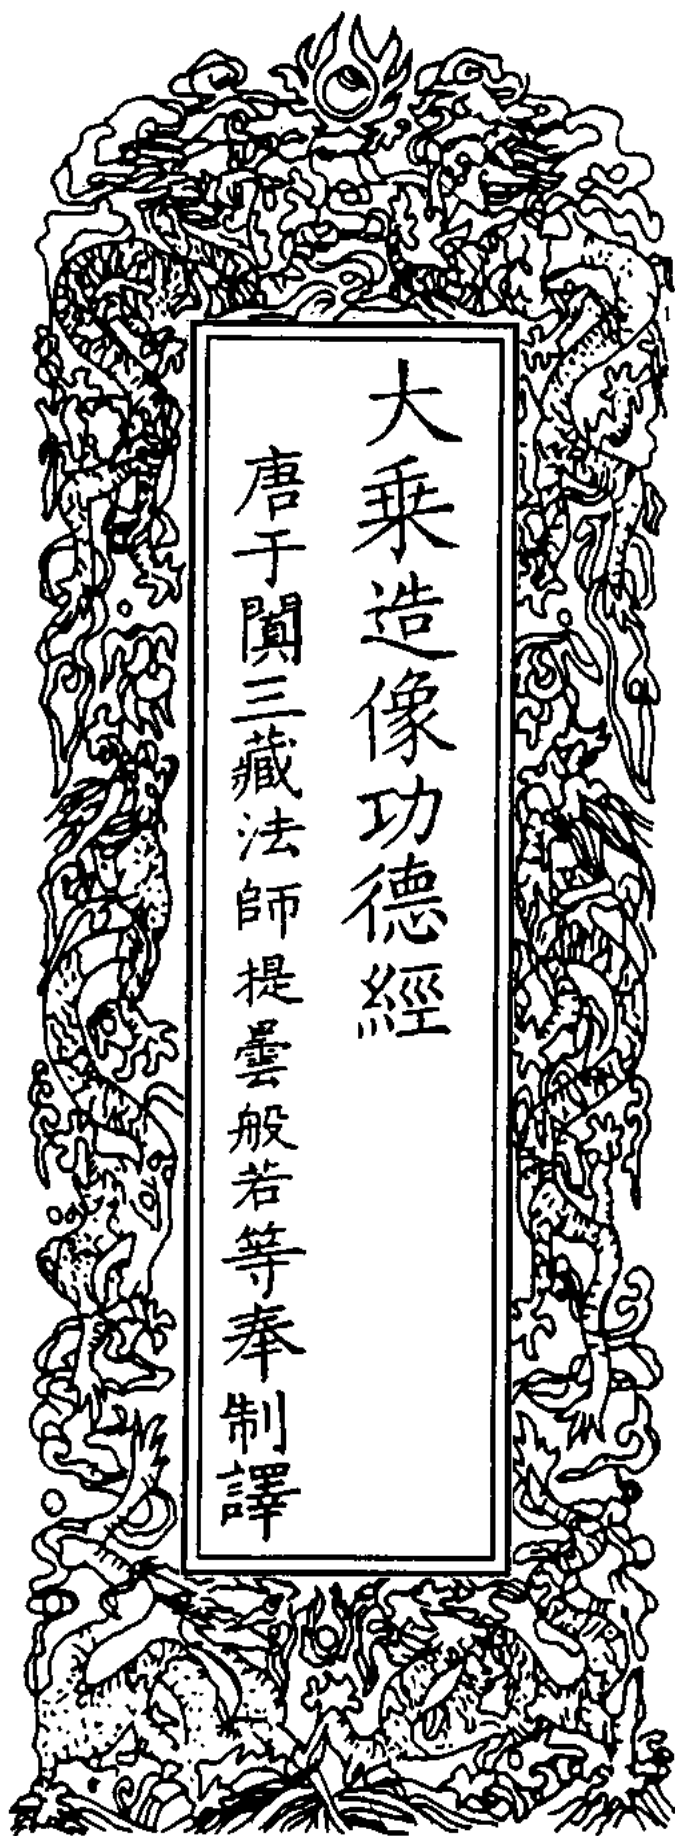 大乗造像功德經
唐于闐三藏法師提曇般若等奉制譯